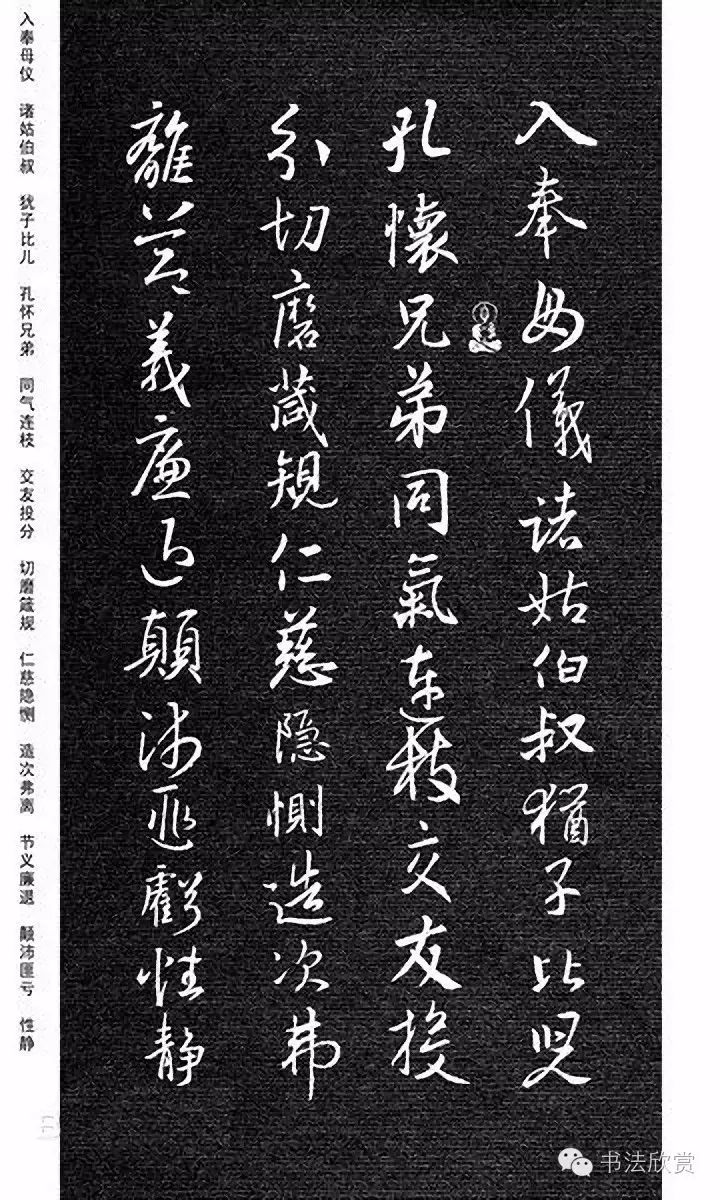 入奉母儀諸姑伯叔猶子比児
孔懷兄弟同氣連枝交友投
分切磨箴規仁慈隐惻造次弗
離节義廉退顛沛匪虧性静
入奉母仪 诸姑伯叔 犹子比儿 孔怀兄弟 同气连枝 交友投分 切磨箴规 仁慈隐恻 造次弗离 节义廉退 颠沛匪亏 性静
书法欣赏